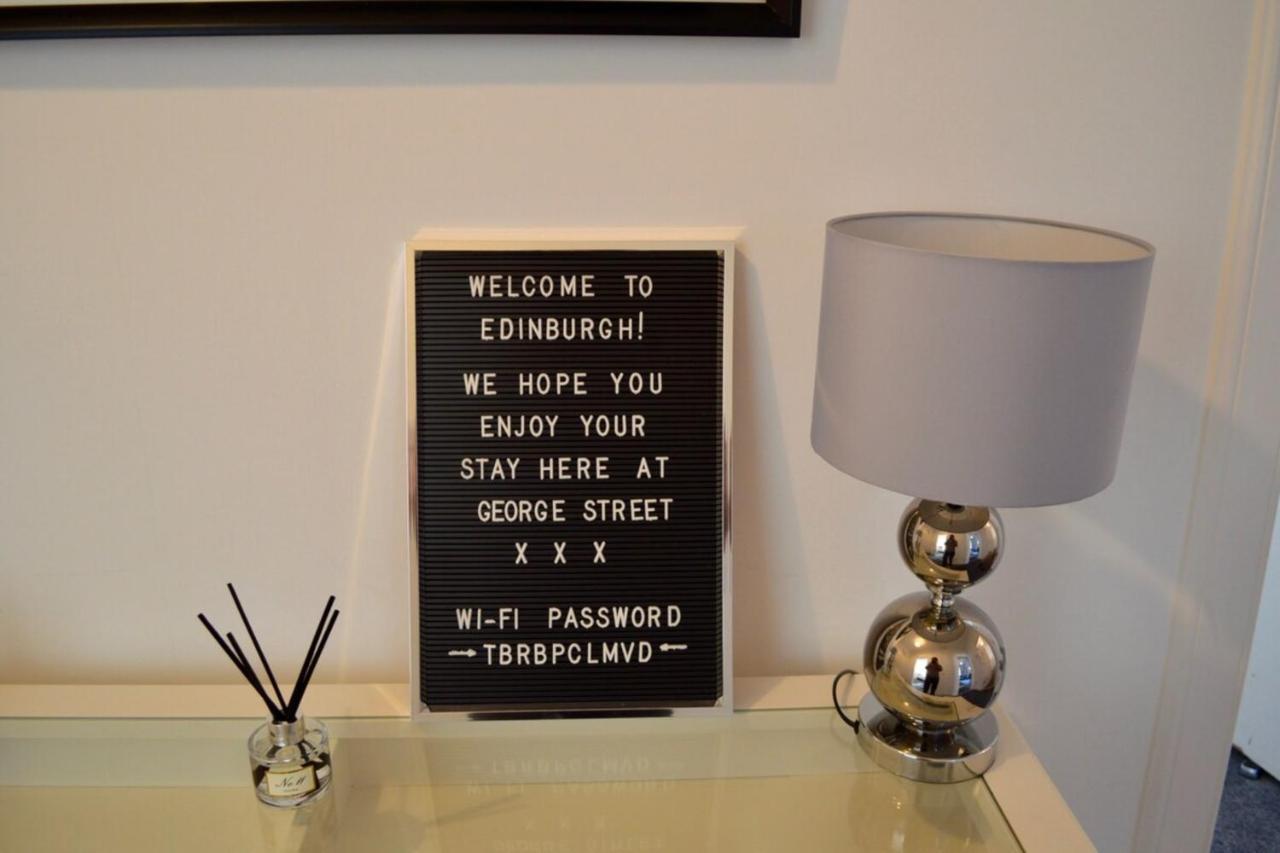 WELCOME TO
EDINBURGH!
WE HOPE YOU
ENJOY YOUR
STAY HERE AT
GEORGE STREET
X X X
WI-FI PASSWORD
→TBRBPCLMVD←
No. 11